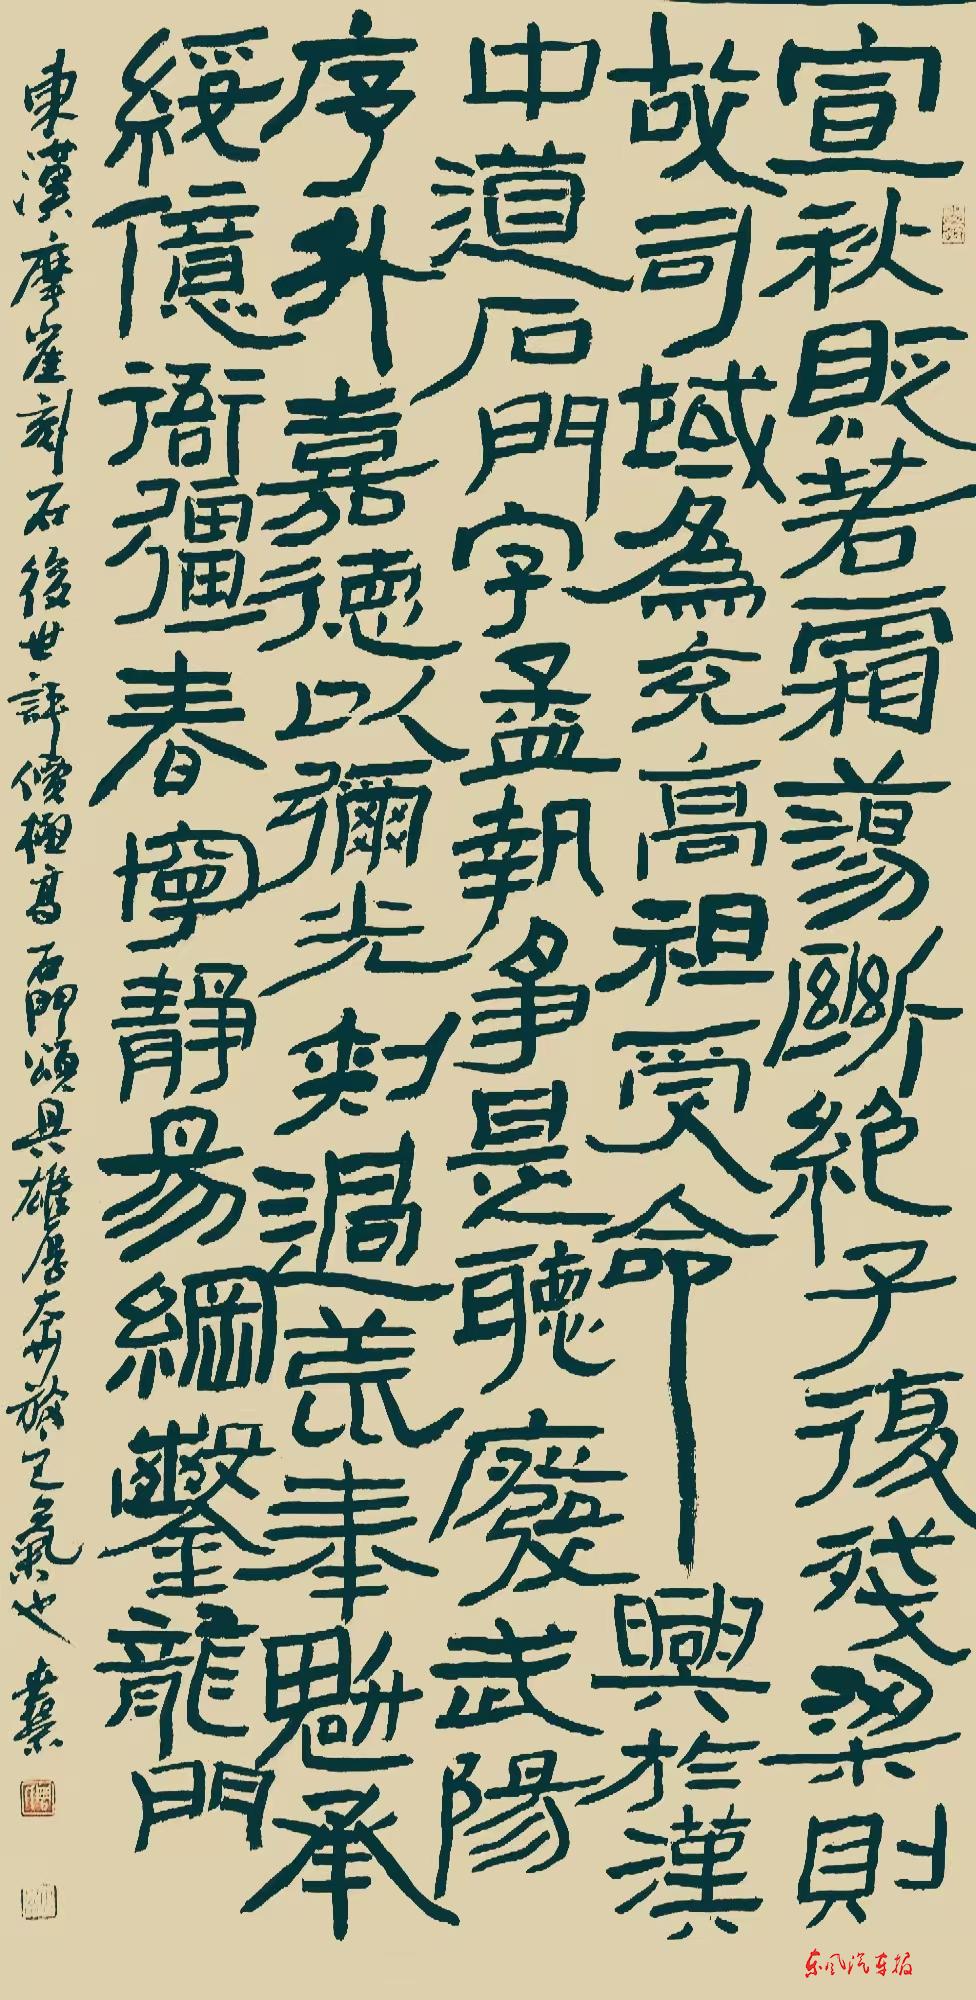 宣秋貶若霜蕩斷絕子復殘梁則
故司域為充高祖受命興於漢
中道石門字孟執爭是聽廢武陽
序升嘉德以彌光刺過荒奉魁承
綏億衙彊春寧靜易綱鑿龍門
東漢摩崖刻石後世評價極高石門頌具雄厚奔放之氣也
东风汽车报